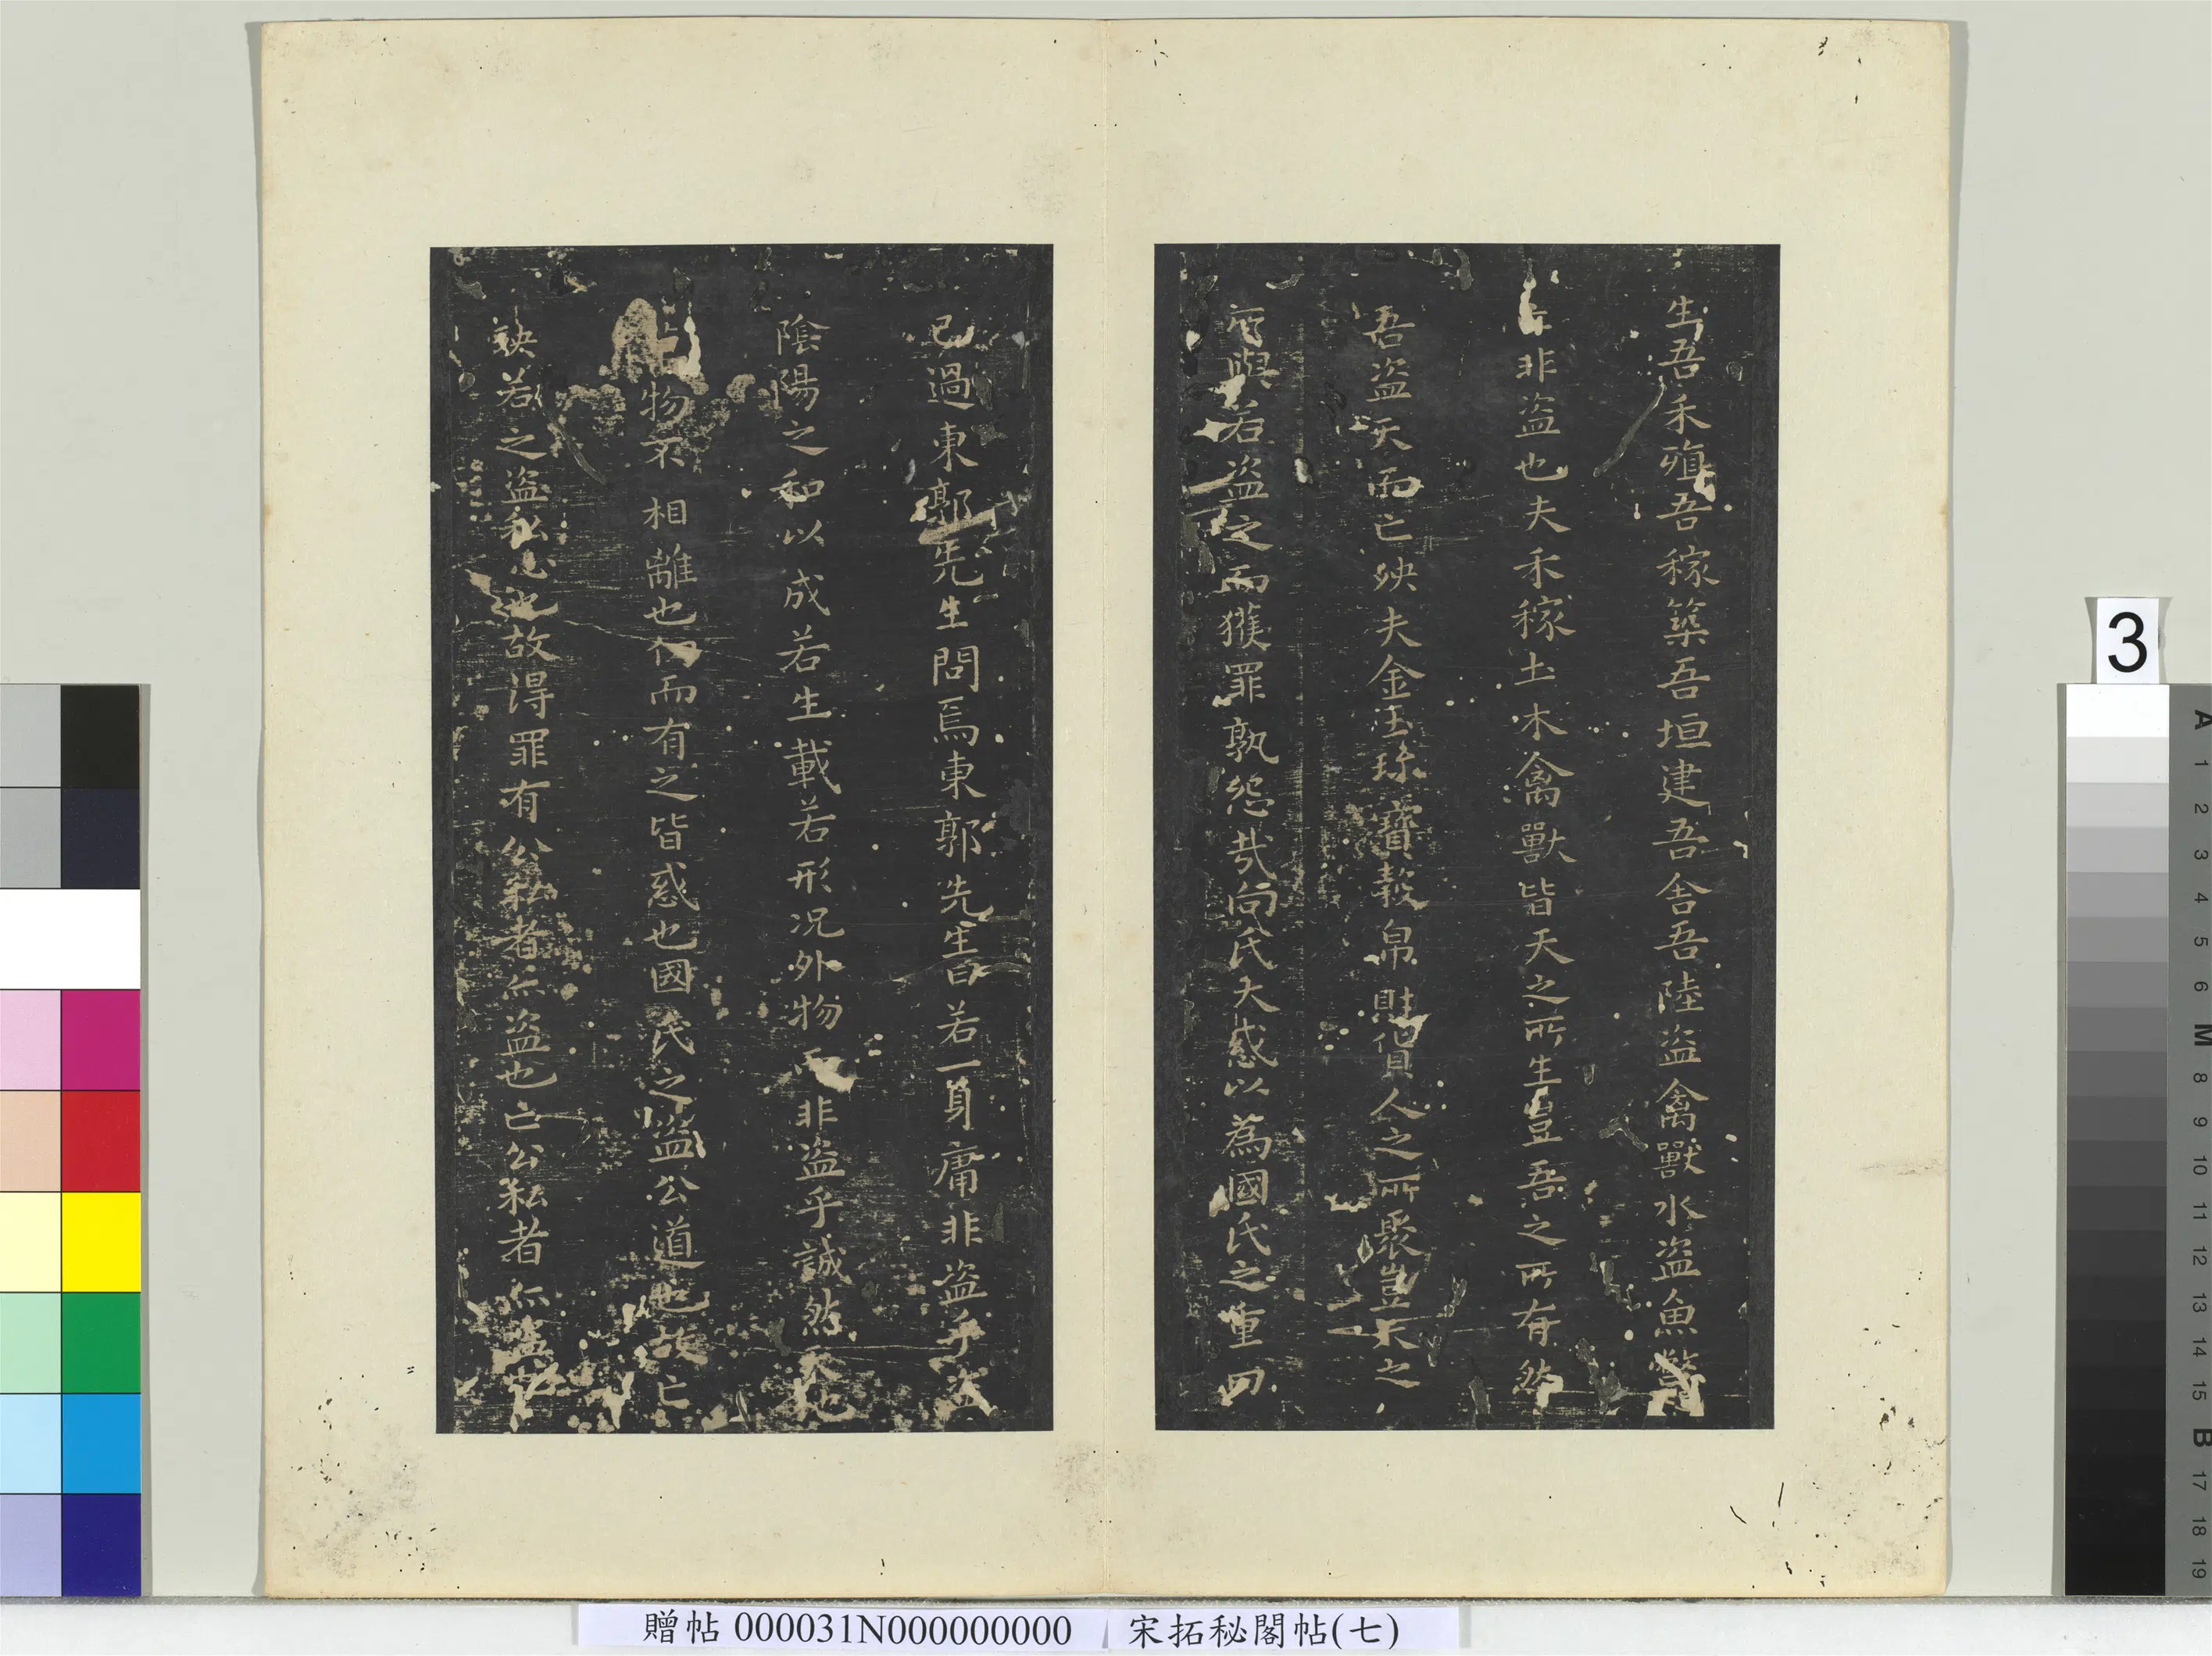 生吾禾殖吾稼築吾垣建吾舍吾陸盜禽獸水盜魚鱉
非盜也夫禾稼土木禽獸皆天之所生豈吾之所有然
吾盜天而亡殃夫金玉珎寶穀帛財貨人之所聚豈天之
與若盜之而獲罪孰怨哉向氏大惑以為國氏之重
已過東郭先生問焉東郭先生曰若一身庸非盜乎盜
陰陽之和以成若生載若形況外物而非盜乎誠然天地
物不相離也仞而有之皆惑也國氏之盜公道也故亡
殃若之盜私心也故得罪有公私者亦盜也亡公私者亦盜也
贈帖 000031N000000000 宋拓秘閣帖(七)
3
A 1 2 3 4 5 6 M 8 9 10 11 12 13 14 15 B 17 18 19